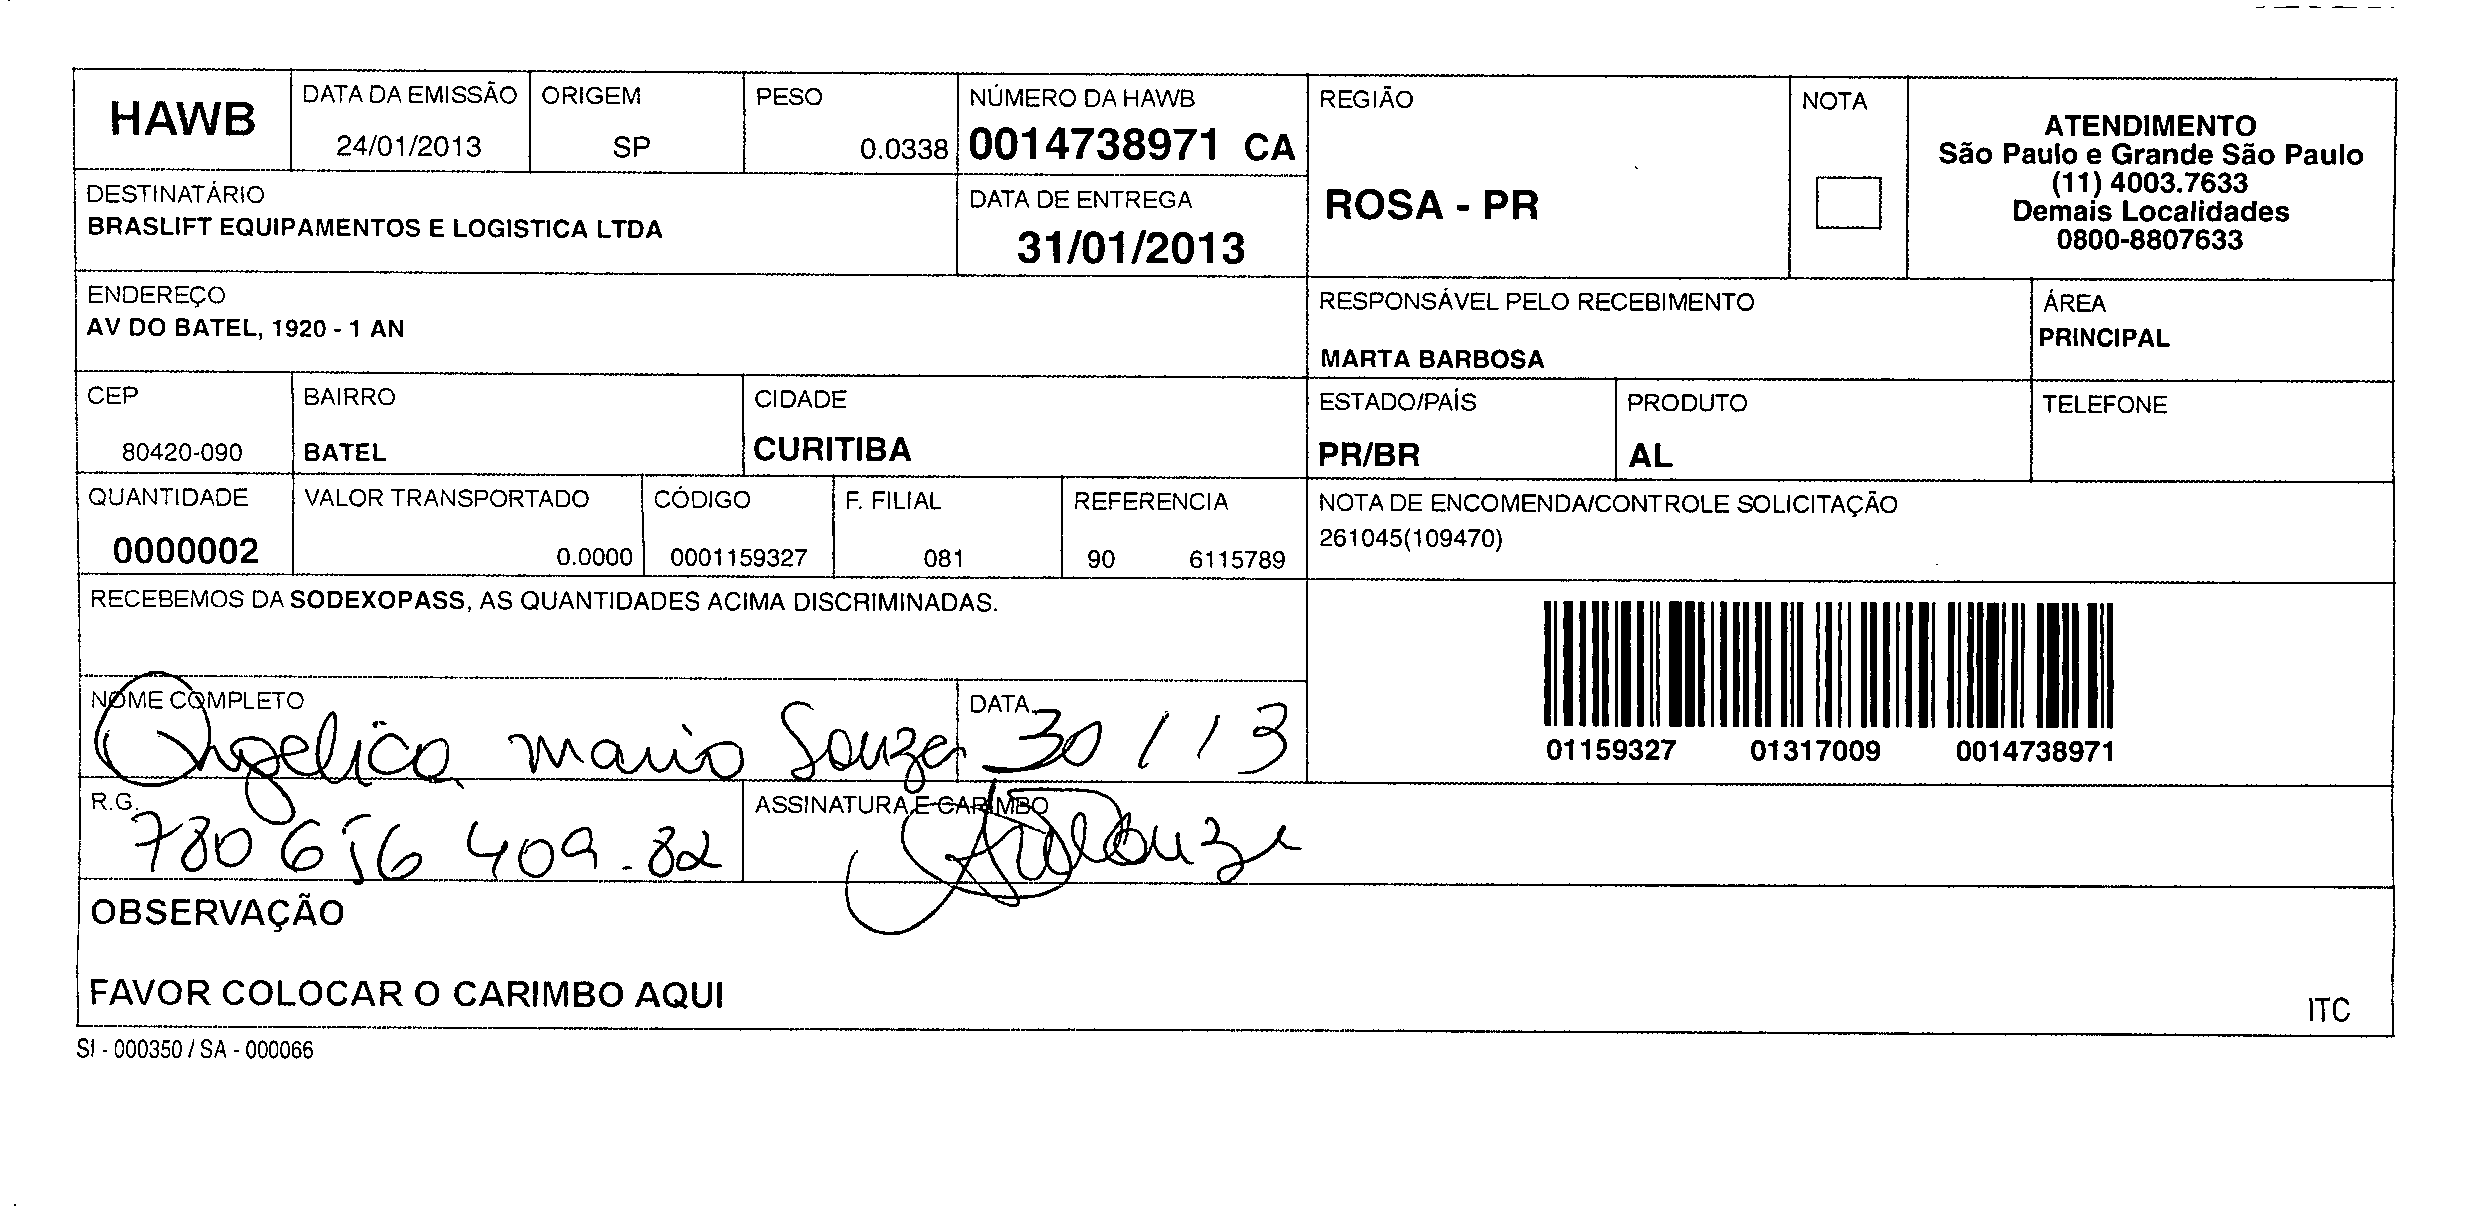 HAWB
DATA DA EMISSÃO
24/01/2013
ORIGEM
SP
PESO
0.0338
NÚMERO DA HAWB
0014738971 CA
REGIÃO
ROSA - PR
NOTA
ATENDIMENTO
São Paulo e Grande São Paulo
(11) 4003.7633
Demais Localidades
0800-8807633
DESTINATÁRIO
BRASLIFT EQUIPAMENTOS E LOGISTICA LTDA
DATA DE ENTREGA
31/01/2013
ENDEREÇO
AV DO BATEL, 1920 - 1 AN
RESPONSÁVEL PELO RECEBIMENTO
MARTA BARBOSA
ÁREA
PRINCIPAL
CEP
80420-090
BAIRRO
BATEL
CIDADE
CURITIBA
ESTADO/PAÍS
PR/BR
PRODUTO
AL
TELEFONE
QUANTIDADE
0000002
VALOR TRANSPORTADO
0.0000
CÓDIGO
0001159327
F. FILIAL
081
REFERENCIA
90 6115789
NOTA DE ENCOMENDA/CONTROLE SOLICITAÇÃO
261045(109470)
RECEBEMOS DA SODEXOPASS, AS QUANTIDADES ACIMA DISCRIMINADAS.
01159327 01317009 0014738971
NOME COMPLETO
Angelica maria Souza
DATA
30 / / 3
R.G.
780 656 409.82
ASSINATURA E CARIMBO
OBSERVAÇÃO
FAVOR COLOCAR O CARIMBO AQUI
ITC
SI - 000350 / SA - 000066